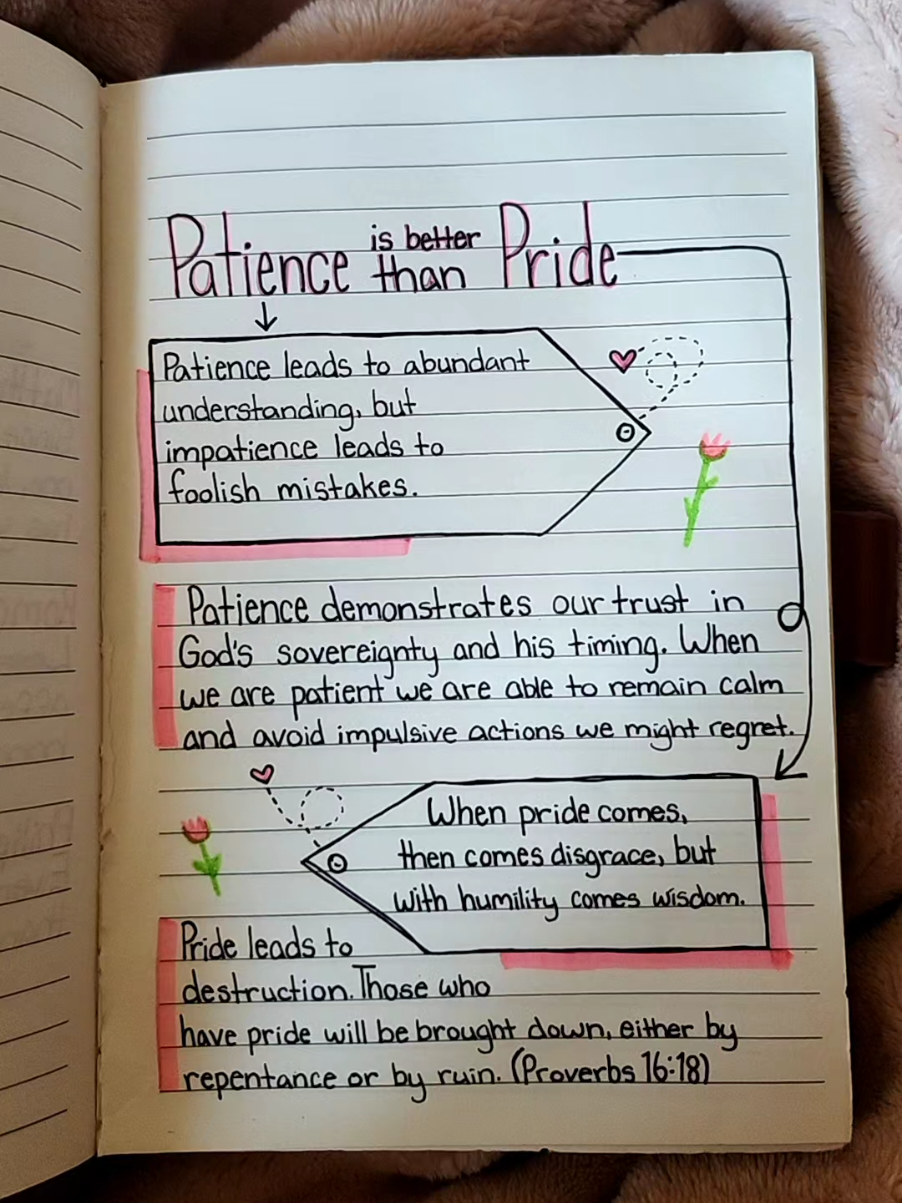 Patience is better than Pride
Patience leads to abundant
understanding, but
impatience leads to
foolish mistakes.
Patience demonstrates our trust in
God's sovereignty and his timing. When
we are patient we are able to remain calm
and avoid impulsive actions we might regret.
When pride comes,
then comes disgrace, but
with humility comes wisdom.
Pride leads to
destruction. Those who
have pride will be brought down, either by
repentance or by ruin. (Proverbs 16:18)